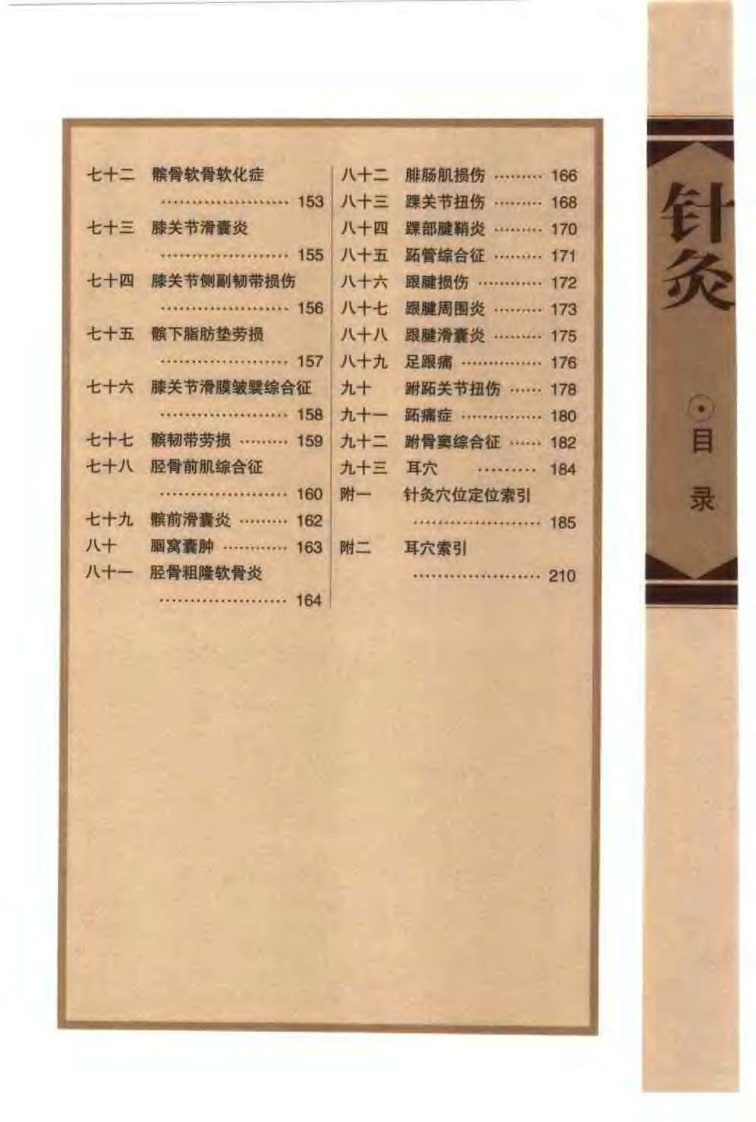 七十二 髌骨软骨软化症
………………… 153
七十三 膝关节滑囊炎
………………… 155
七十四 膝关节侧副韧带损伤
………………… 156
七十五 髌下脂肪垫劳损
………………… 157
七十六 膝关节滑膜皱襞综合征
………………… 158
七十七 髌韧带劳损 ……… 159
七十八 胫骨前肌综合征
………………… 160
七十九 髌前滑囊炎 ……… 162
八十 腘窝囊肿 ………… 163
八十一 胫骨粗隆软骨炎
………………… 164
八十二 腓肠肌损伤 ……… 166
八十三 踝关节扭伤 ……… 168
八十四 踝部腱鞘炎 ……… 170
八十五 跖管综合征 ……… 171
八十六 跟腱损伤 ………… 172
八十七 跟腱周围炎 ……… 173
八十八 跟腱滑囊炎 ……… 175
八十九 足跟痛 …………… 176
九十 跗跖关节扭伤 …… 178
九十一 跖痛症 …………… 180
九十二 跗骨窦综合征 …… 182
九十三 耳穴 ……… 184
附一 针灸穴位定位索引
………………… 185
附二 耳穴索引
………………… 210
针灸
目录